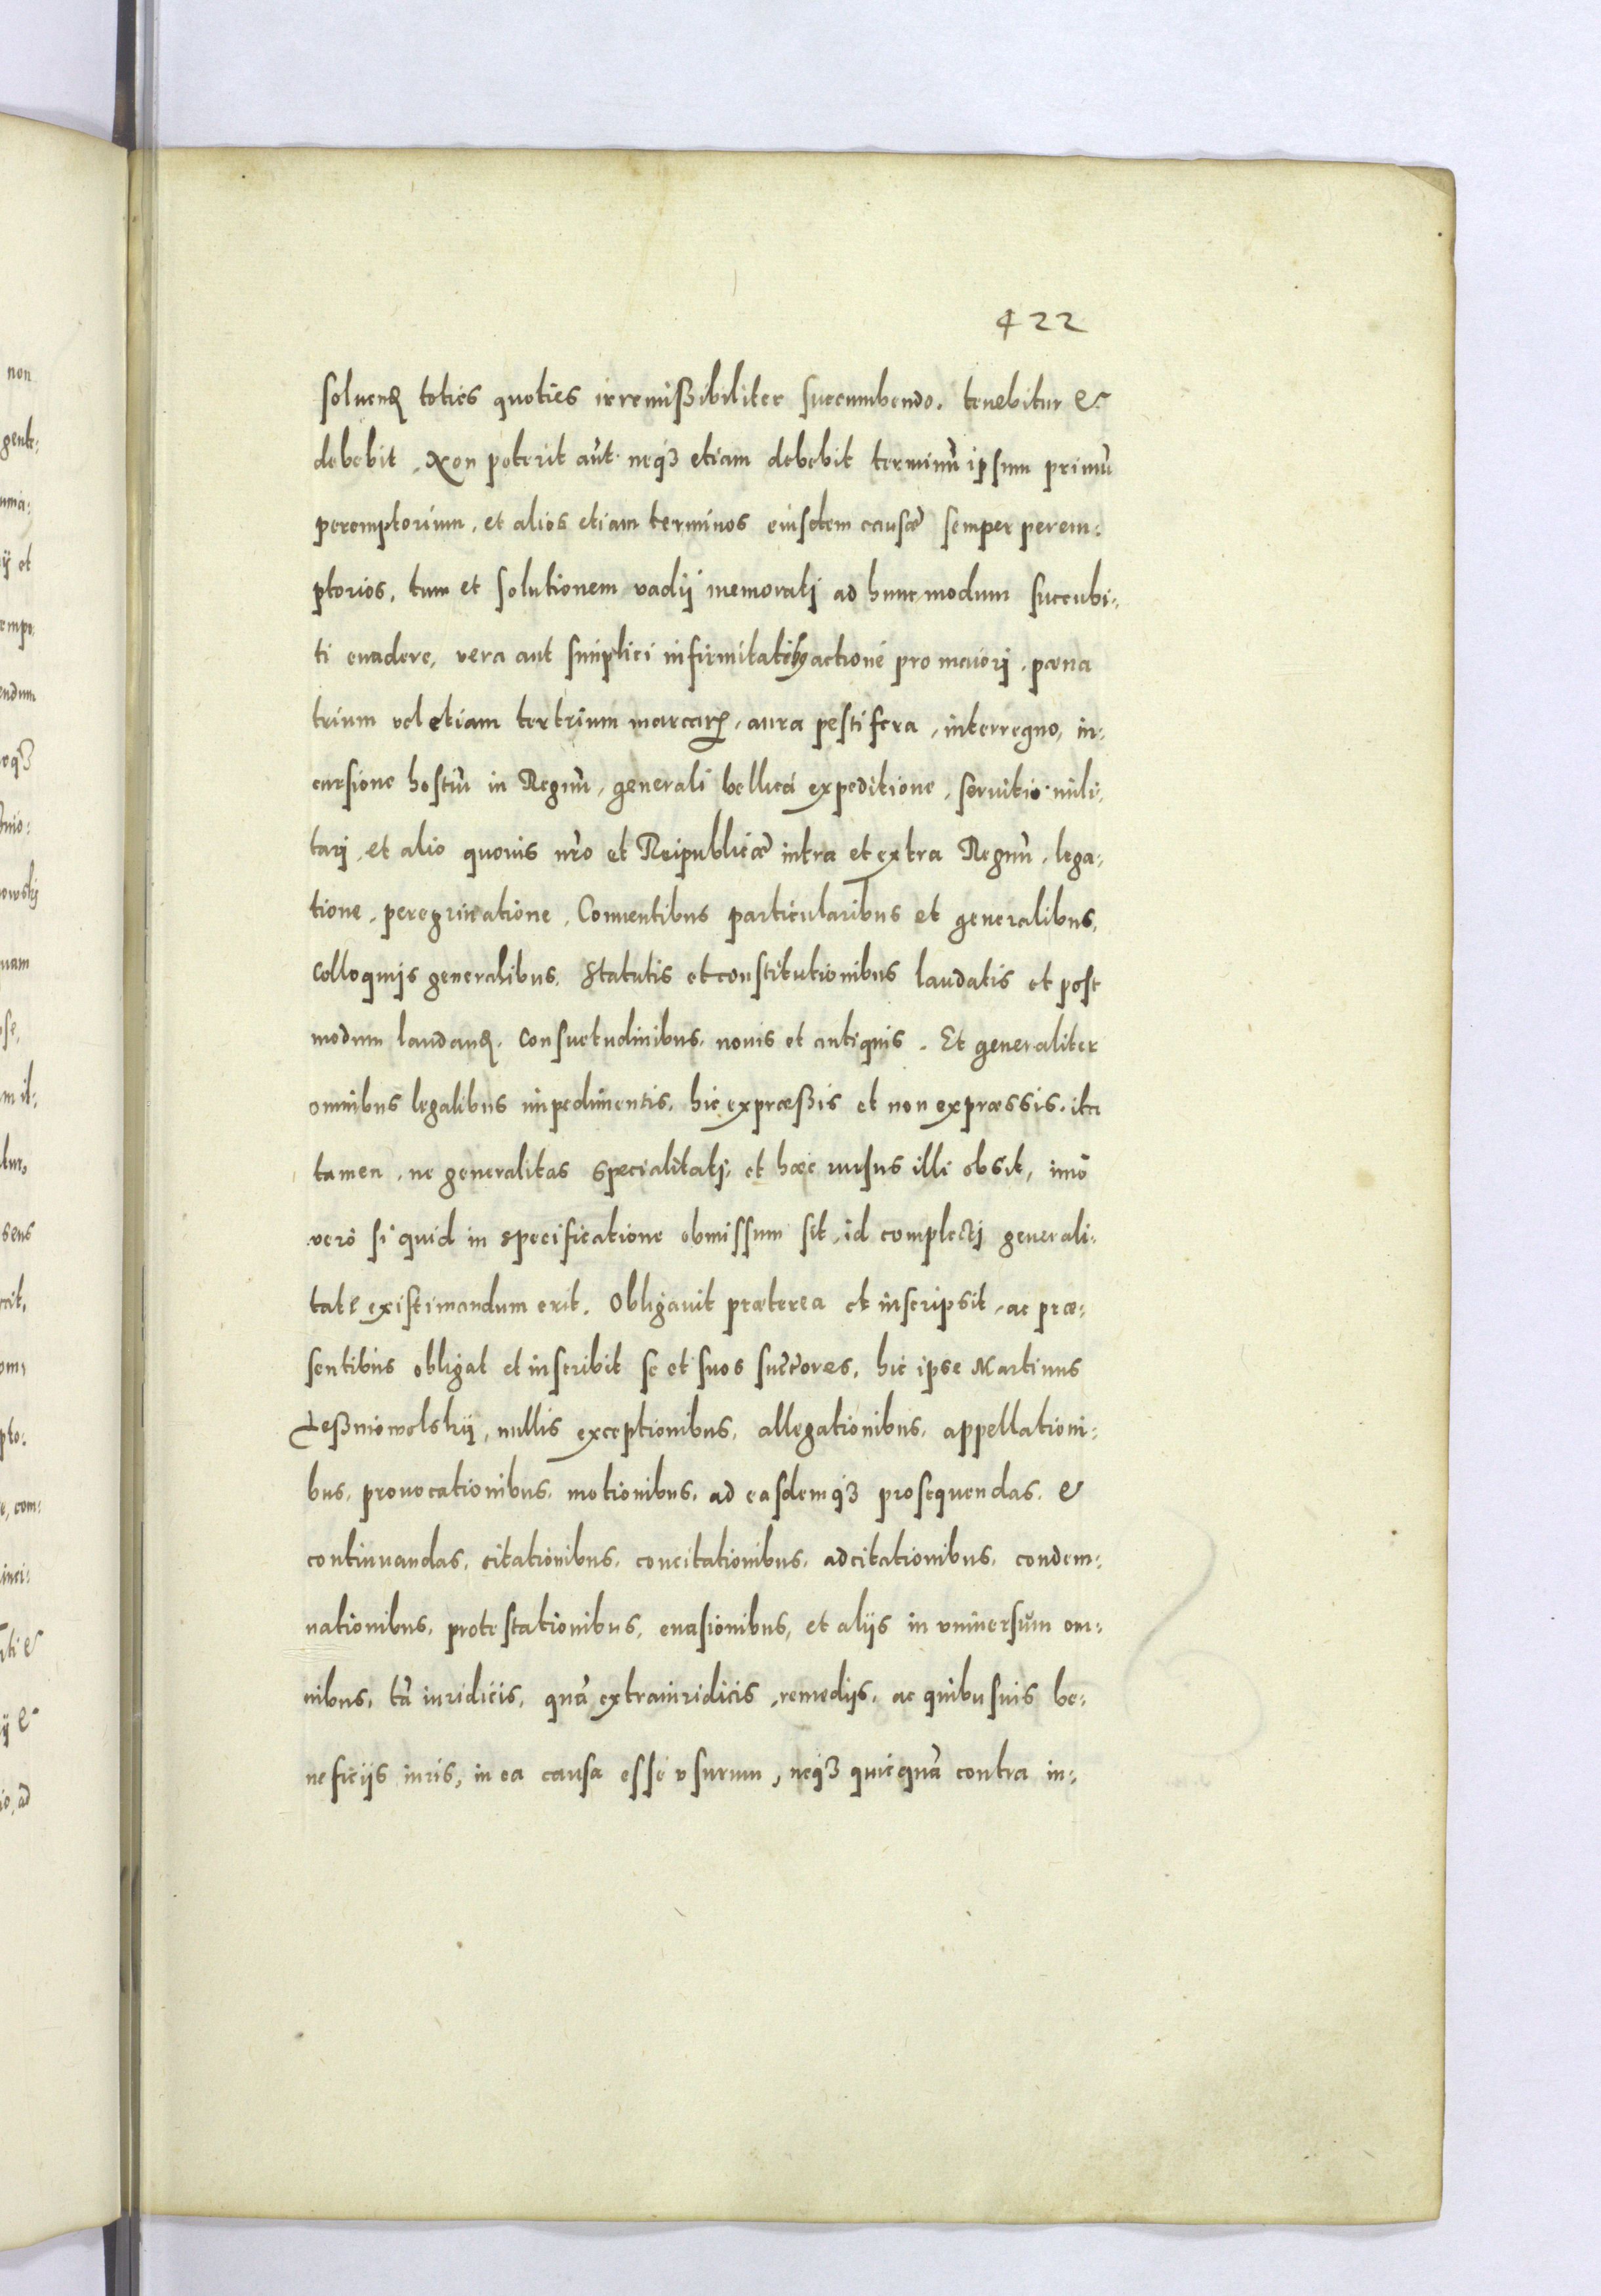 422
soluenꝝ toties quoties irremißibiliter succumbendo. tenebitur &
debebit. Non poterit aūt neqꝫ etiam debebit terminū ipsum primū
peremptorium, et alios etiam terminos eiusdem causæ semper perem:
ptorios, tum et solutionem vadij memoratj ad hunc modum succubi:
ti euadere, vera aut simplici infirmitatibus actione pro maiorj, pœna
trium vel etiam marcarꝝ, aura pestifera, interregno, in:
cursione hostiū in Regnū, generali bellica expeditione, seruitio mili:
tarj, et alio quouis nr̄o et Reipublicæ intra et extra Regnū, lega:
tione, peregrinatione, Conuentibus particularibus et generalibus,
Colloquijs generalibus. Statutis et constitutionibus laudatis et post
modum laudanꝝ. Consuetudinibus, nouis et antiquis. Et generaliter
omnibus legalibus impedimentis, hic expræßis et non expræssis. ita
tamen, ne generalitas specialitatj, et hæc rursus illi obsit, imo
vero si quid in specificatione obmissum sit, id complectj generali:
tate existimandum erit. Obligauit præterea et inscripsit, ac præ:
sentibus obligat et inscribit se et suos succ̄ores, hic ipse Martinus
Leßniowolskij, nullis exceptionibus, allegationibus, appellationi:
bus, prouocationibus, motionibus, ad easdemqꝫ prosequendas. &
continuandas, citationibus, concitationibus, adcitationibus, condem:
nationibus, protestationibus, euasionibus, et alijs in vniuersum om:
nibus, tā iuridicis, quā extraiuridicis, remedijs, ac quibusuis be:
neficijs iuris, in ea causa esse vsurum, neqꝫ quicquā contra in: